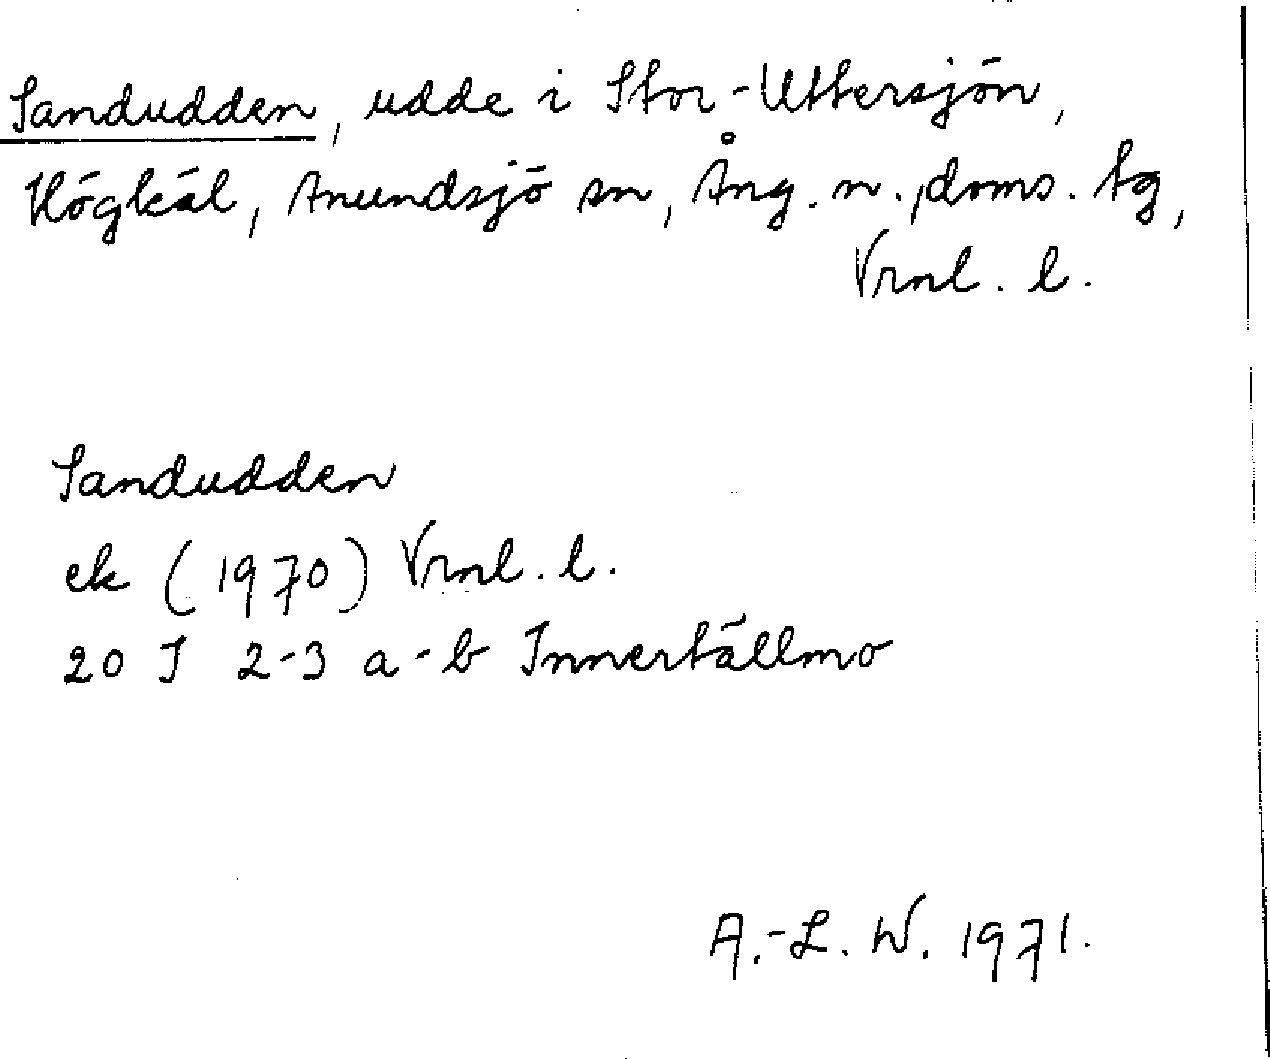 Sandudden, udde i Stor-Uttersjön,
Högkäl, Anundsjö sn, Ång. n. doms. tg,
Vrnl. l.
Sandudden
ek (1970) Vrnl. l.
20 I 2-3 a-b Innertällmo
A.-L. W. 1971.